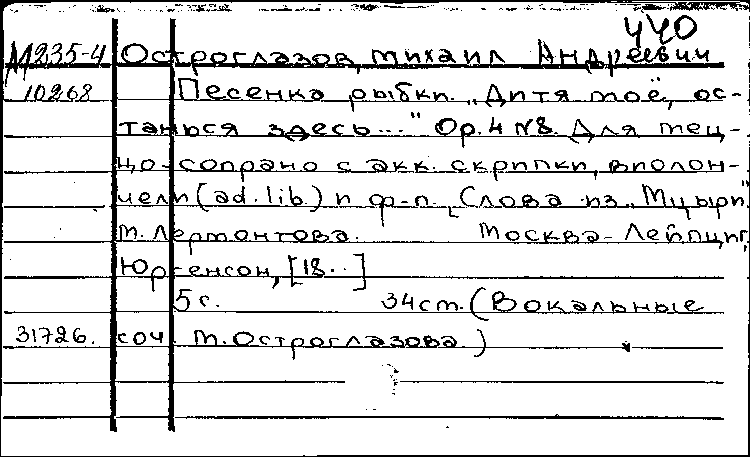 440
М235-4 Остроглазов, Михаил Андреевич
10268 Песенка рыбки. „Дитя моё, ос-
танься здесь..." Op. 4 N8. Для мец-
цо-сопрано с акк. скрипки, виолон-
чели (ad. lib.) и ф-п. Слова из „Мцыри"
М. Лермонтова. Москва-Лейпциг,
Юргенсон, [18..]
5 с. 34 см. (Вокальные
31726. соч. М. Остроглазова.)